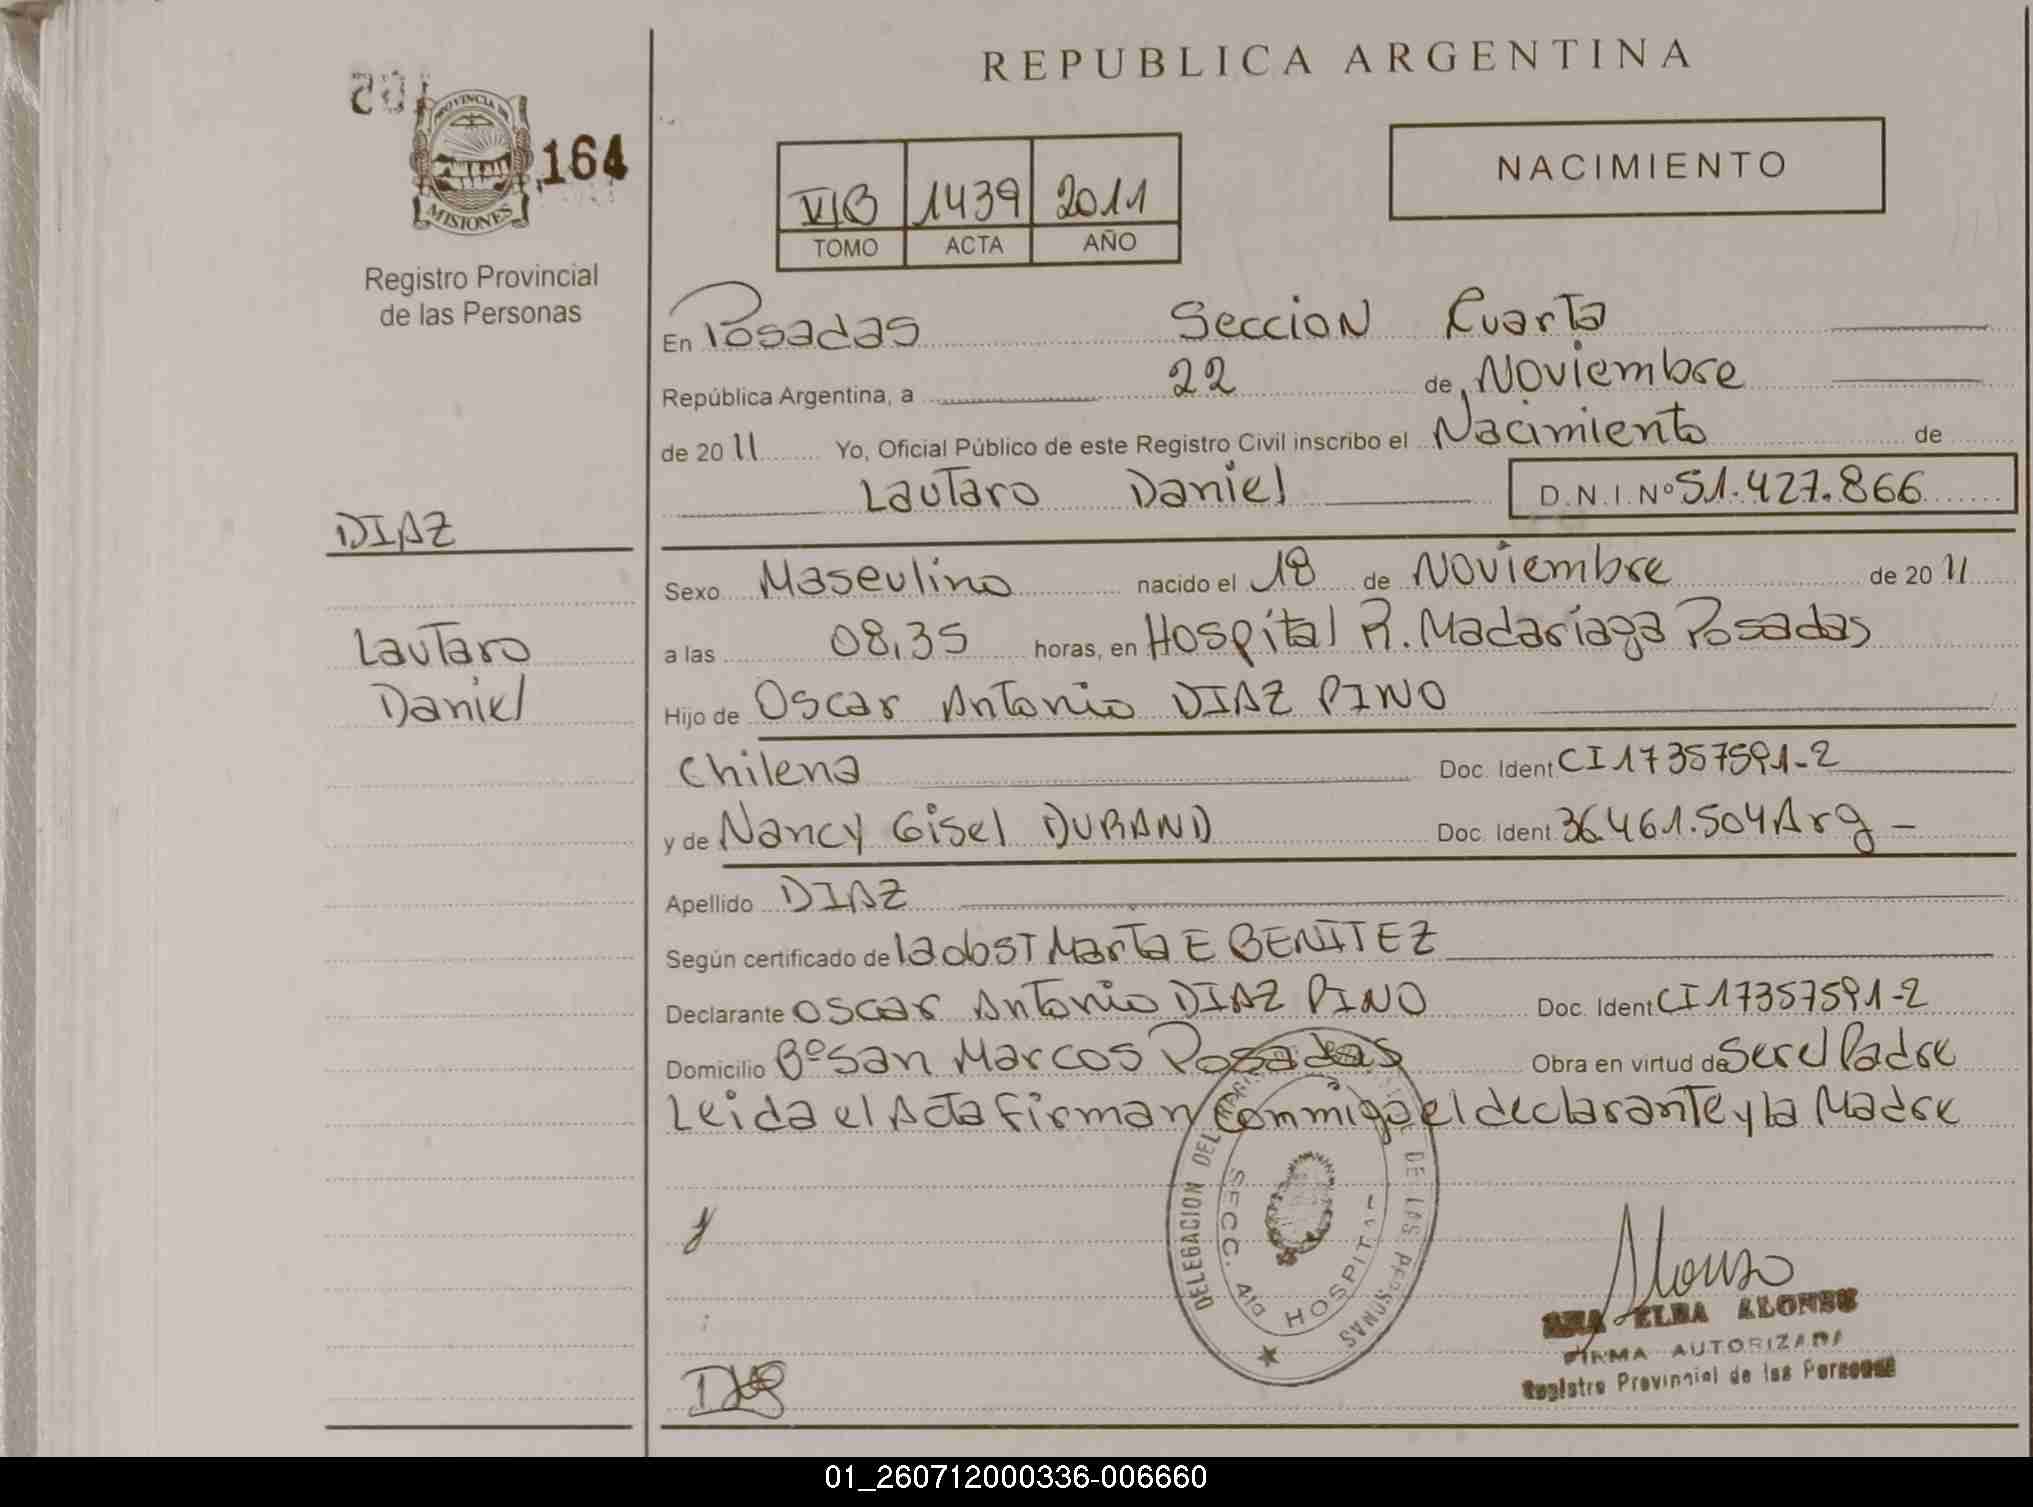 REPUBLICA ARGENTINA
PROVINCIA DE
MISIONES
164
Registro Provincial
de las Personas
NACIMIENTO
VIB 1439 2011
TOMO ACTA AÑO
En Posadas Seccion Cuarta
República Argentina, a 22 de Noviembre
de 2011 Yo, Oficial Público de este Registro Civil inscribo el Nacimiento de
Lautaro Daniel D.N.I. Nº 51.427.866
DIAZ
Lautaro
Daniel
Sexo Masculino nacido el 18 de Noviembre de 2011
a las 08,35 horas, en Hospital R. Madariaga Posadas
Hijo de Oscar Antonio DIAZ PINO
Chilena Doc. Ident CI 17357591-2
y de Nancy Gisel DURAND Doc. Ident. 36461.504 Arg -
Apellido DIAZ
Según certificado de la obst Marta E BENITEZ
Declarante Oscar Antonio DIAZ PINO Doc. Ident CI 17357591-2
Domicilio Bº San Marcos Posadas Obra en virtud de Ser el Padre
Leida el Acta firman Commigo el declarante y la Madre
DELEGACION DEL DE LAS PERSONAS
SECC. 4ta HOSPITAL
Alonso
SRA ELBA ALONSO
FIRMA AUTORIZADA
Registro Provincial de las Personas
01_260712000336-006660